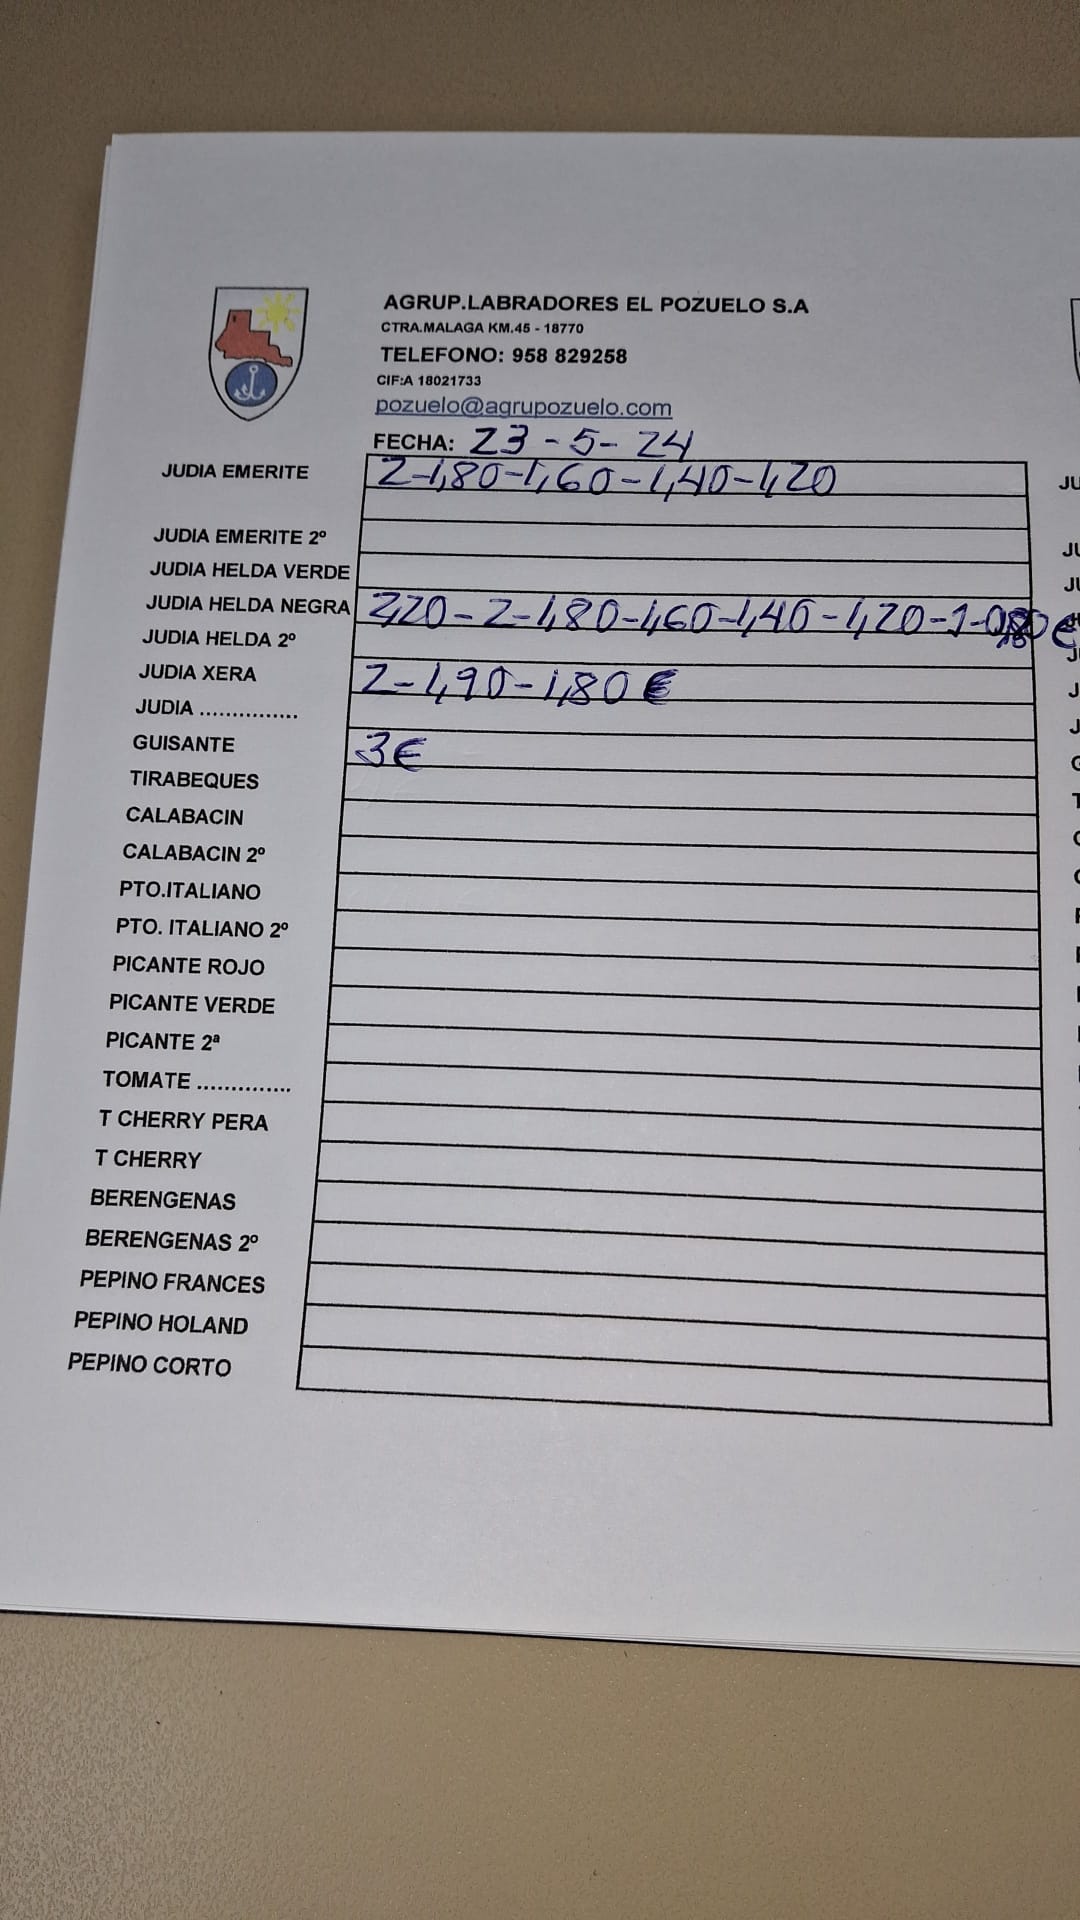 AGRUP.LABRADORES EL POZUELO S.A
CTRA.MALAGA KM.45 - 18770
TELEFONO: 958 829258
CIF:A 18021733
pozuelo@agrupozuelo.com
FECHA: 23-5-24
JUDIA EMERITE 2-1,80-1,60-1,40-1,20
JUDIA EMERITE 2º
JUDIA HELDA VERDE
JUDIA HELDA NEGRA 2,20-2-1,80-1,60-1,40-1,20-1-0,80€
JUDIA HELDA 2º
JUDIA XERA 2-1,90-1,80€
JUDIA ...............
GUISANTE 3€
TIRABEQUES
CALABACIN
CALABACIN 2º
PTO.ITALIANO
PTO. ITALIANO 2º
PICANTE ROJO
PICANTE VERDE
PICANTE 2ª
TOMATE ..............
T CHERRY PERA
T CHERRY
BERENGENAS
BERENGENAS 2º
PEPINO FRANCES
PEPINO HOLAND
PEPINO CORTO